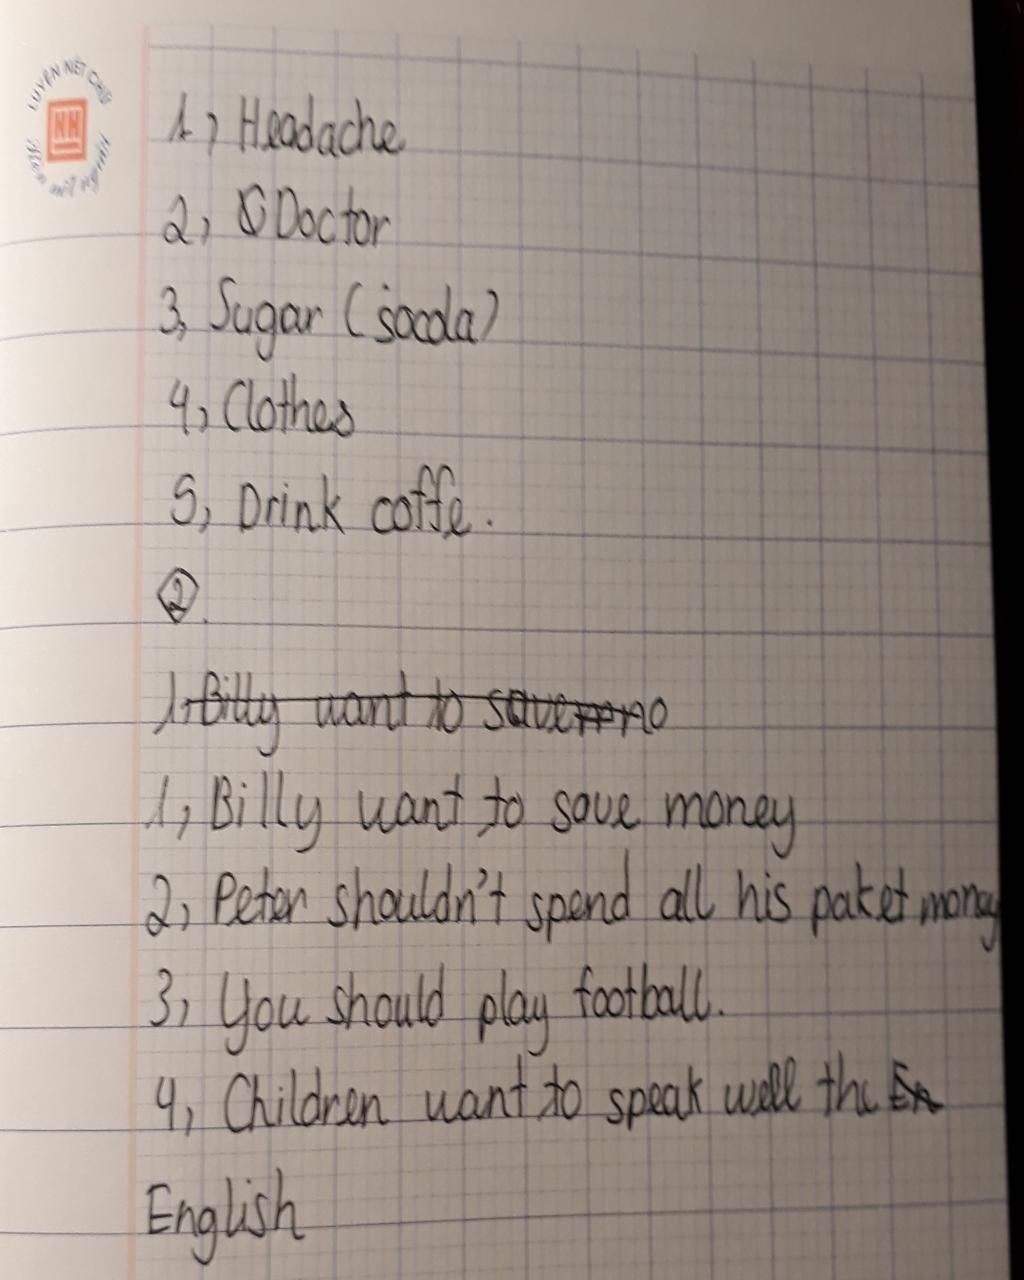 LUYỆN NÉT CHỮ
HH
Rèn nết người
1, Headache
2, Doctor
3, Sugar (socda)
4, Clothes
5, Drink coffe.
2.
1, Billy want to save mo
1, Billy want to save money
2, Peter shouldn't spend all his paket money
3, You should play football.
4, Children want to speak well the En
English